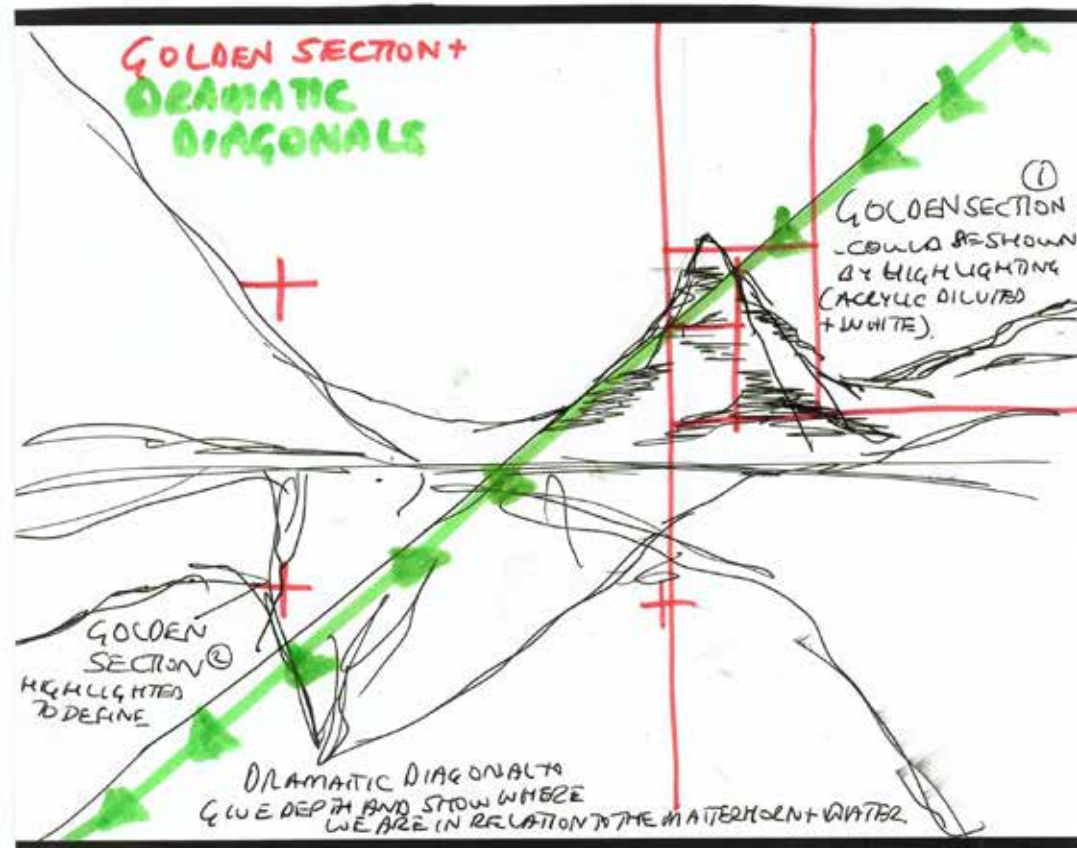 GOLDEN SECTION +
DRAMATIC
DIAGONALS
①
GOLDEN SECTION
- COULD BE SHOWN
BY HIGHLIGHTING
(ACRYLIC DILUTED
+ WHITE).
GOLDEN
SECTION ②
HIGHLIGHTED
TO DEFINE
DRAMATIC DIAGONAL TO
GIVE DEPTH AND SHOW WHERE
WE ARE IN RELATION TO THE MATTERHORN + WATER.